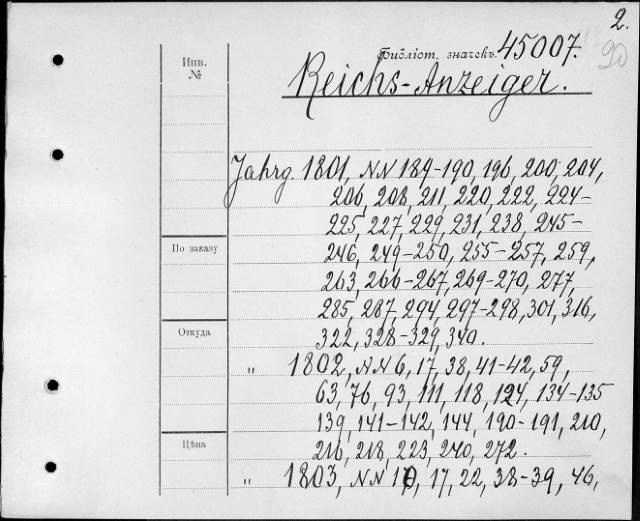 2.
90
Библіот. значекъ 45007.
Reichs-Anzeiger.
Инв.
№
Jahrg. 1801, NN 189-190, 196, 200, 204,
206, 208, 211, 220, 222, 224-
225, 227, 229, 231, 238, 245-
246, 249-250, 255-257, 259,
263, 266-267, 269-270, 277,
285, 287, 294, 297-298, 301, 316,
322, 328-329, 340.
По заказу
Откуда
Цѣна
" 1802, NN 6, 17, 38, 41-42, 59,
63, 76, 93, 111, 118, 124, 134-135
139, 141-142, 144, 190-191, 210,
216, 218, 223, 240, 272.
" 1803, NN 10, 17, 22, 38-39, 46,